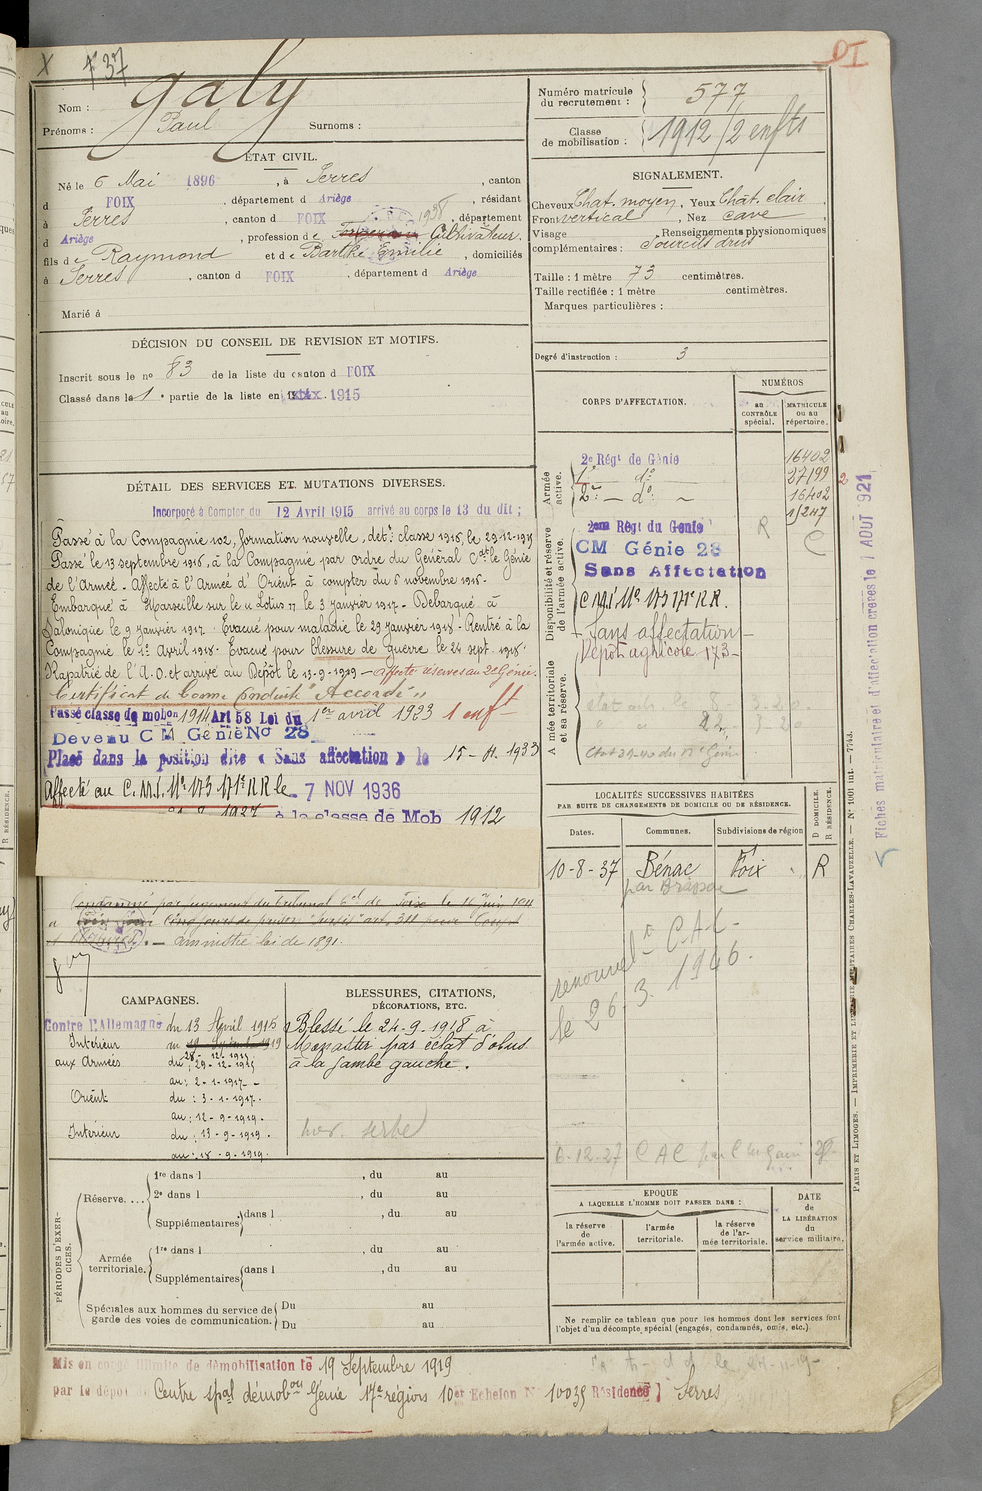 X
N° 37
DI
Nom : Galy
Prénoms : Paul Surnoms :
ÉTAT CIVIL.
Né le 6 Mai 1896, à Serres, canton
d FOIX, département d Ariège, résidant
à Serres, canton d FOIX 1938, département
d Ariège, profession de Cultivateur.
fils de Raymond et de Barthe Emilie, domiciliés
à Serres, canton d FOIX, département d Ariège
Marié à
DÉCISION DU CONSEIL DE REVISION ET MOTIFS.
Inscrit sous le n° 83 de la liste du canton d FOIX
Classé dans la 1e partie de la liste en 1915
DÉTAIL DES SERVICES ET MUTATIONS DIVERSES.
Incorporé à Compter du 12 Avril 1915 arrivé au corps le 13 du dit ;
Passé à la Compagnie 102, formation nouvelle, dét: classe 1916, le 29-12-1915
Passé le 13 septembre 1916, à la Compagnie par ordre du Général Cdt le Génie
de l'Armée. Affecté à l'Armée d'Orient à compter du 5 novembre 1916.
Embarqué à Marseille sur le "Lotus" le 3 janvier 1917. Débarqué à
Salonique le 9 janvier 1917. Evacué pour maladie le 29 janvier 1918. Rentré à la
Compagnie le 1er Avril 1918. Evacué pour blessure de guerre le 24 sept. 1918.
Rapatrié de l'A.O. et arrivé au Dépôt le 13-9-1919 - affecté réserves au 2e Génie.
Certificat de bonne conduite "Accordé"
Passé classe de mobon 1914 Art 58 Loi du 1er avril 1923 1 enft
Devenu C M Génie No 28
Placé dans la position dite « Sans affectation » le 15-11-1933
Affecté au C.M.I. N° 173 171e R R le 7 NOV 1936
à la classe de Mob 1912
Condamné par jugement du tribunal Cel de Foix le 14 juin 1911
à cinq jours de prison "sursis" art. 311 pour Coups
. — amnistié loi de 1891.
CAMPAGNES.
Contre l'Allemagne du 13 Avril 1915
Intérieur au 28-12-1915
aux Armées du : 29-12-1915
au : 2-1-1917 -
Orient du : 3-1-1917.
au : 12-9-1919.
Intérieur du : 13-9-1919.
au : 18-9-1919.
BLESSURES, CITATIONS,
DÉCORATIONS, ETC.
Blessé le 24-9-1918 à
Monastir par éclat d'obus
à la jambe gauche.
PÉRIODES D'EXERCICES.
Réserve. ...
1re dans l , du au
2e dans l , du au
Supplémentaires dans l , du au
Armée territoriale.
1re dans l , du au
Supplémentaires dans l , du au
Spéciales aux hommes du service de garde des voies de communication.
Du au
Du au
Mis en congé illimité de démobilisation le 19 Septembre 1919
par le dépôt Centre spal démobon Génie 17e régions 10er Echelon N° 10035 Résidence Serres
Numéro matricule du recrutement : 577
Classe de mobilisation : 1912 / 2 enfts
SIGNALEMENT.
Cheveux Chat. moyen, Yeux Chât. clair,
Front vertical, Nez cave,
Visage , Renseignements physionomiques
complémentaires : Sourcils drus
Taille : 1 mètre 73 centimètres.
Taille rectifiée : 1 mètre centimètres.
Marques particulières :
Degré d'instruction : 3
CORPS D'AFFECTATION.
NUMÉROS
au CONTRÔLE spécial.
MATRICULE ou au répertoire.
Armée active.
2e Régt de Génie 16402
1° d° 27199
2° — d° — 16402
Disponibilité et réserve de l'armée active.
2eme Régt du Genie R
CM Génie 28 C
Sans Affectation
C M I N° 173 171e R R.
Sans affectation
Dépôt agricole 173
Armée territoriale et sa réserve.
LOCALITÉS SUCCESSIVES HABITÉES
PAR SUITE DE CHANGEMENTS DE DOMICILE OU DE RÉSIDENCE.
Dates. Communes. Subdivisions de région
D DOMICILE.
R RÉSIDENCE.
10-8-37 Bénac Foix R
par Brassac
renouvelt C.A.C.
le 26.3.1946.
6-12-27 C A C
EPOQUE
A LAQUELLE L'HOMME DOIT PASSER DANS :
la réserve de l'armée active.
l'armée territoriale.
la réserve de l'armée territoriale.
DATE de LA LIBÉRATION du service militaire.
Ne remplir ce tableau que pour les hommes dont les services font
l'objet d'un décompte spécial (engagés, condamnés, omis, etc.).
PARIS ET LIMOGES. — IMPRIMERIE ET LIBRAIRIE MILITAIRES CHARLES-LAVAUZELLE. — N° 1001 int. — 7743.
Fiches matriculaire et d'affectation créées le 1 AOUT 921